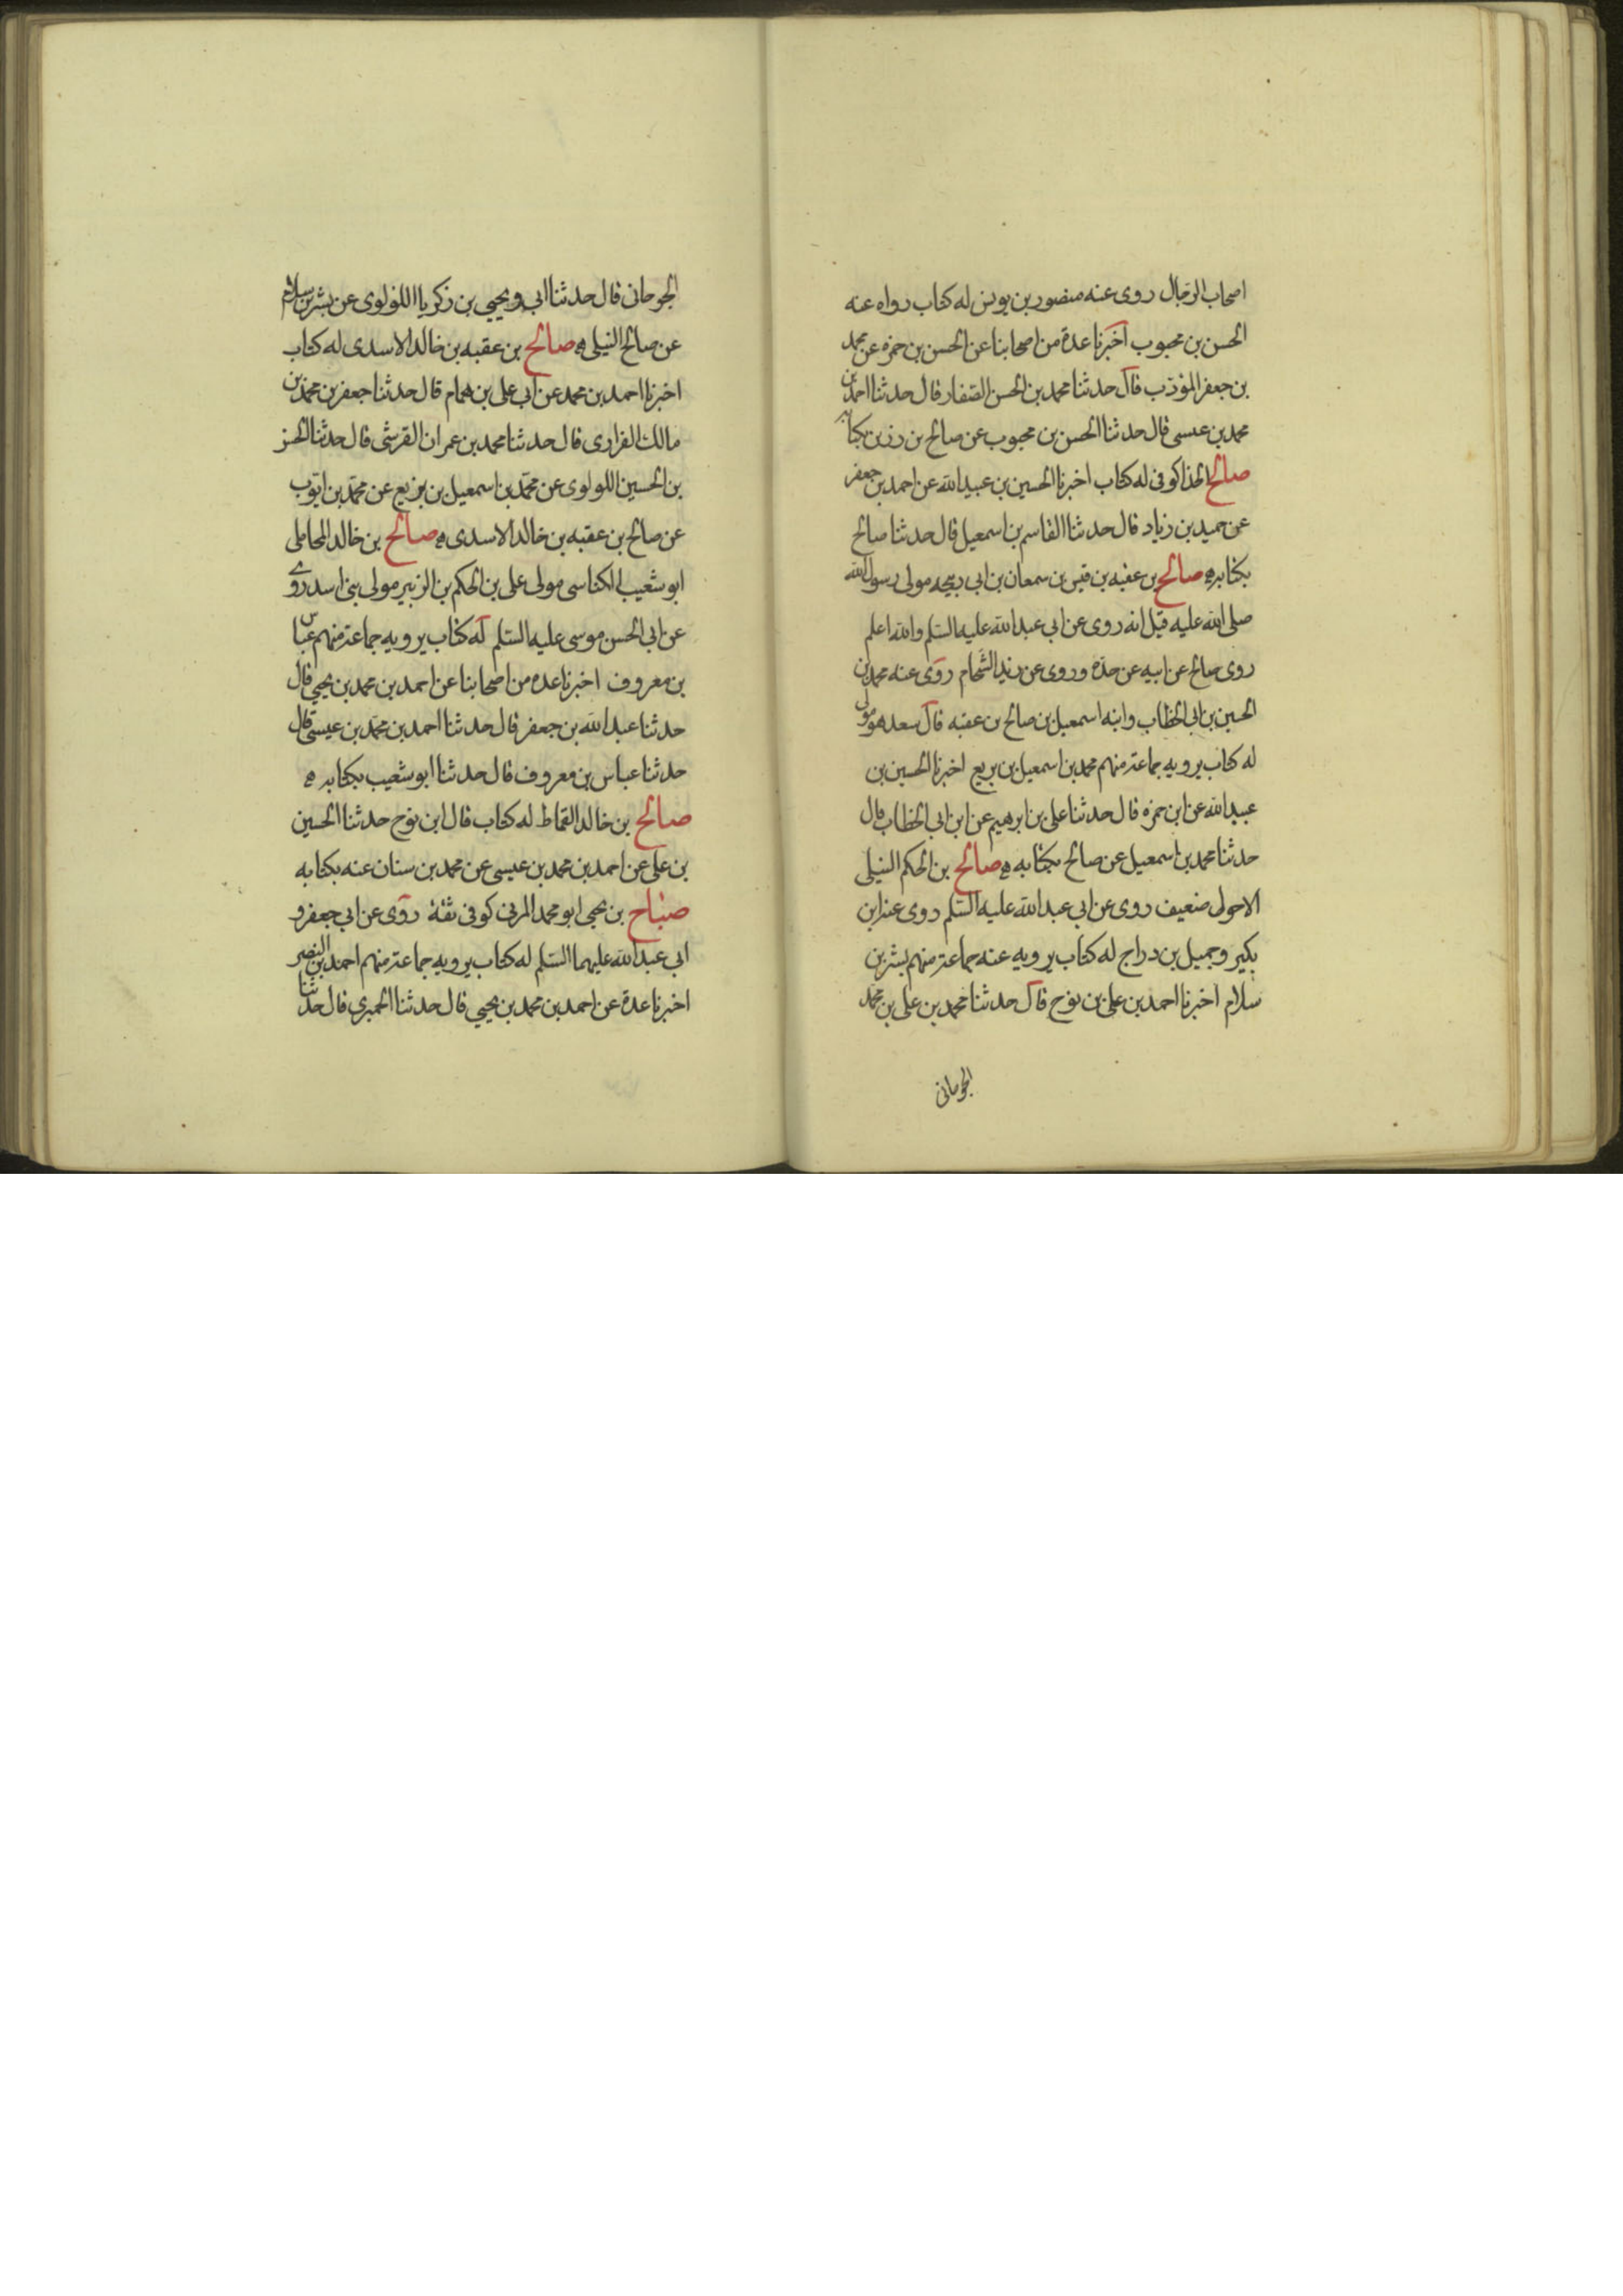 اصحاب الرجال روى عنه منصور بن يونس له كتاب رواه عنه
الحسن بن محبوب اخبرنا عدة من اصحابنا عن الحسن بن حمزه عن محمد
بن جعفر المؤدب قال حدثنا محمد بن الحسن الصفار قال حدثنا احمد بن
محمد بن عيسى قال حدثنا الحسن بن محبوب عن صالح بن رزين بكتابه
صالح الحذا كوفى له كتاب اخبرنا الحسين بن عبيد الله عن احمد بن جعفر
عن حميد بن زياد قال حدثنا القاسم بن اسمعيل قال حدثنا صالح
بكتابه ه صالح بن عقبه بن قيس بن سمعان بن ابى ربيحه مولى رسول الله
صلى الله عليه قيل انه روى عن ابى عبد الله عليه السلم والله اعلم
روى صالح عن ابيه عن جده وروى عن زيد الشحام روى عنه محمد بن
الحسين بن ابى الخطاب وابنه اسمعيل بن صالح بن عقبه قال سعد هو مولى
له كتاب يرويه جماعة منهم محمد بن اسمعيل بن بزيع اخبرنا الحسين بن
عبيد الله عن ابن حمزه قال حدثنا على بن ابرهيم عن ابن ابى الخطاب قال
حدثنا محمد بن اسمعيل عن صالح بكتابه ه صالح بن الحكم النيلى
الاحول ضعيف روى عن ابى عبد الله عليه السلم روى عنه ابن
بكير وجميل بن دراج له كتاب يرويه عنه جماعة منهم بشر بن
سلام اخبرنا احمد بن على بن نوح قال حدثنا محمد بن على بن محمد
الجوحانى
الجوحانى قال حدثنا ابى ويحيى بن زكريا اللؤلوى عن بشر بن سلام
عن صالح النيلى ه صالح بن عقبه بن خالد الاسدى له كتاب
اخبرنا احمد بن محمد عن ابى على بن همام قال حدثنا جعفر بن محمد بن
مالك الفزارى قال حدثنا محمد بن عمران القرشى قال حدثنا الحسن
بن الحسين اللولوى عن محمد بن اسمعيل بن بزيع عن محمد بن ايوب
عن صالح بن عقبه بن خالد الاسدى ه صالح بن خالد المحاملى
ابو شعيب الكناسى مولى على بن الحكم بن الزبير مولى بنى اسد روى
عن ابى الحسن موسى عليه السلم له كتاب يرويه جماعة منهم عباس
بن معروف اخبرنا عده من اصحابنا عن احمد بن محمد بن يحيى قال
حدثنا عبد الله بن جعفر قال حدثنا احمد بن محمد بن عيسى قال
حدثنا عباس بن معروف قال حدثنا ابو شعيب بكتابه ه
صالح بن خالد القماط له كتاب قال ابن نوح حدثنا الحسين
بن على عن احمد بن محمد بن عيسى عن محمد بن سنان عنه بكتابه
صباح بن يحيى ابو محمد المزنى كوفى ثقة روى عن ابى جعفر و
ابى عبد الله عليهما السلم له كتاب يرويه جماعة منهم احمد بن النضر
اخبرنا عدة عن احمد بن محمد بن يحيى قال حدثنا الحميرى قال حدثنا